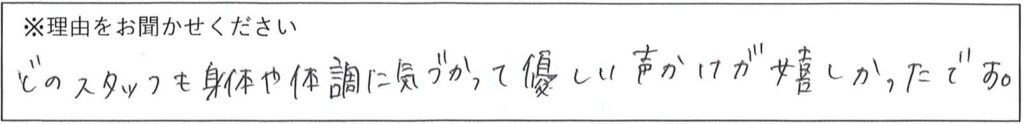 ※理由をお聞かせください
どのスタッフも身体や体調に気づかって優しい声かけが嬉しかったです。